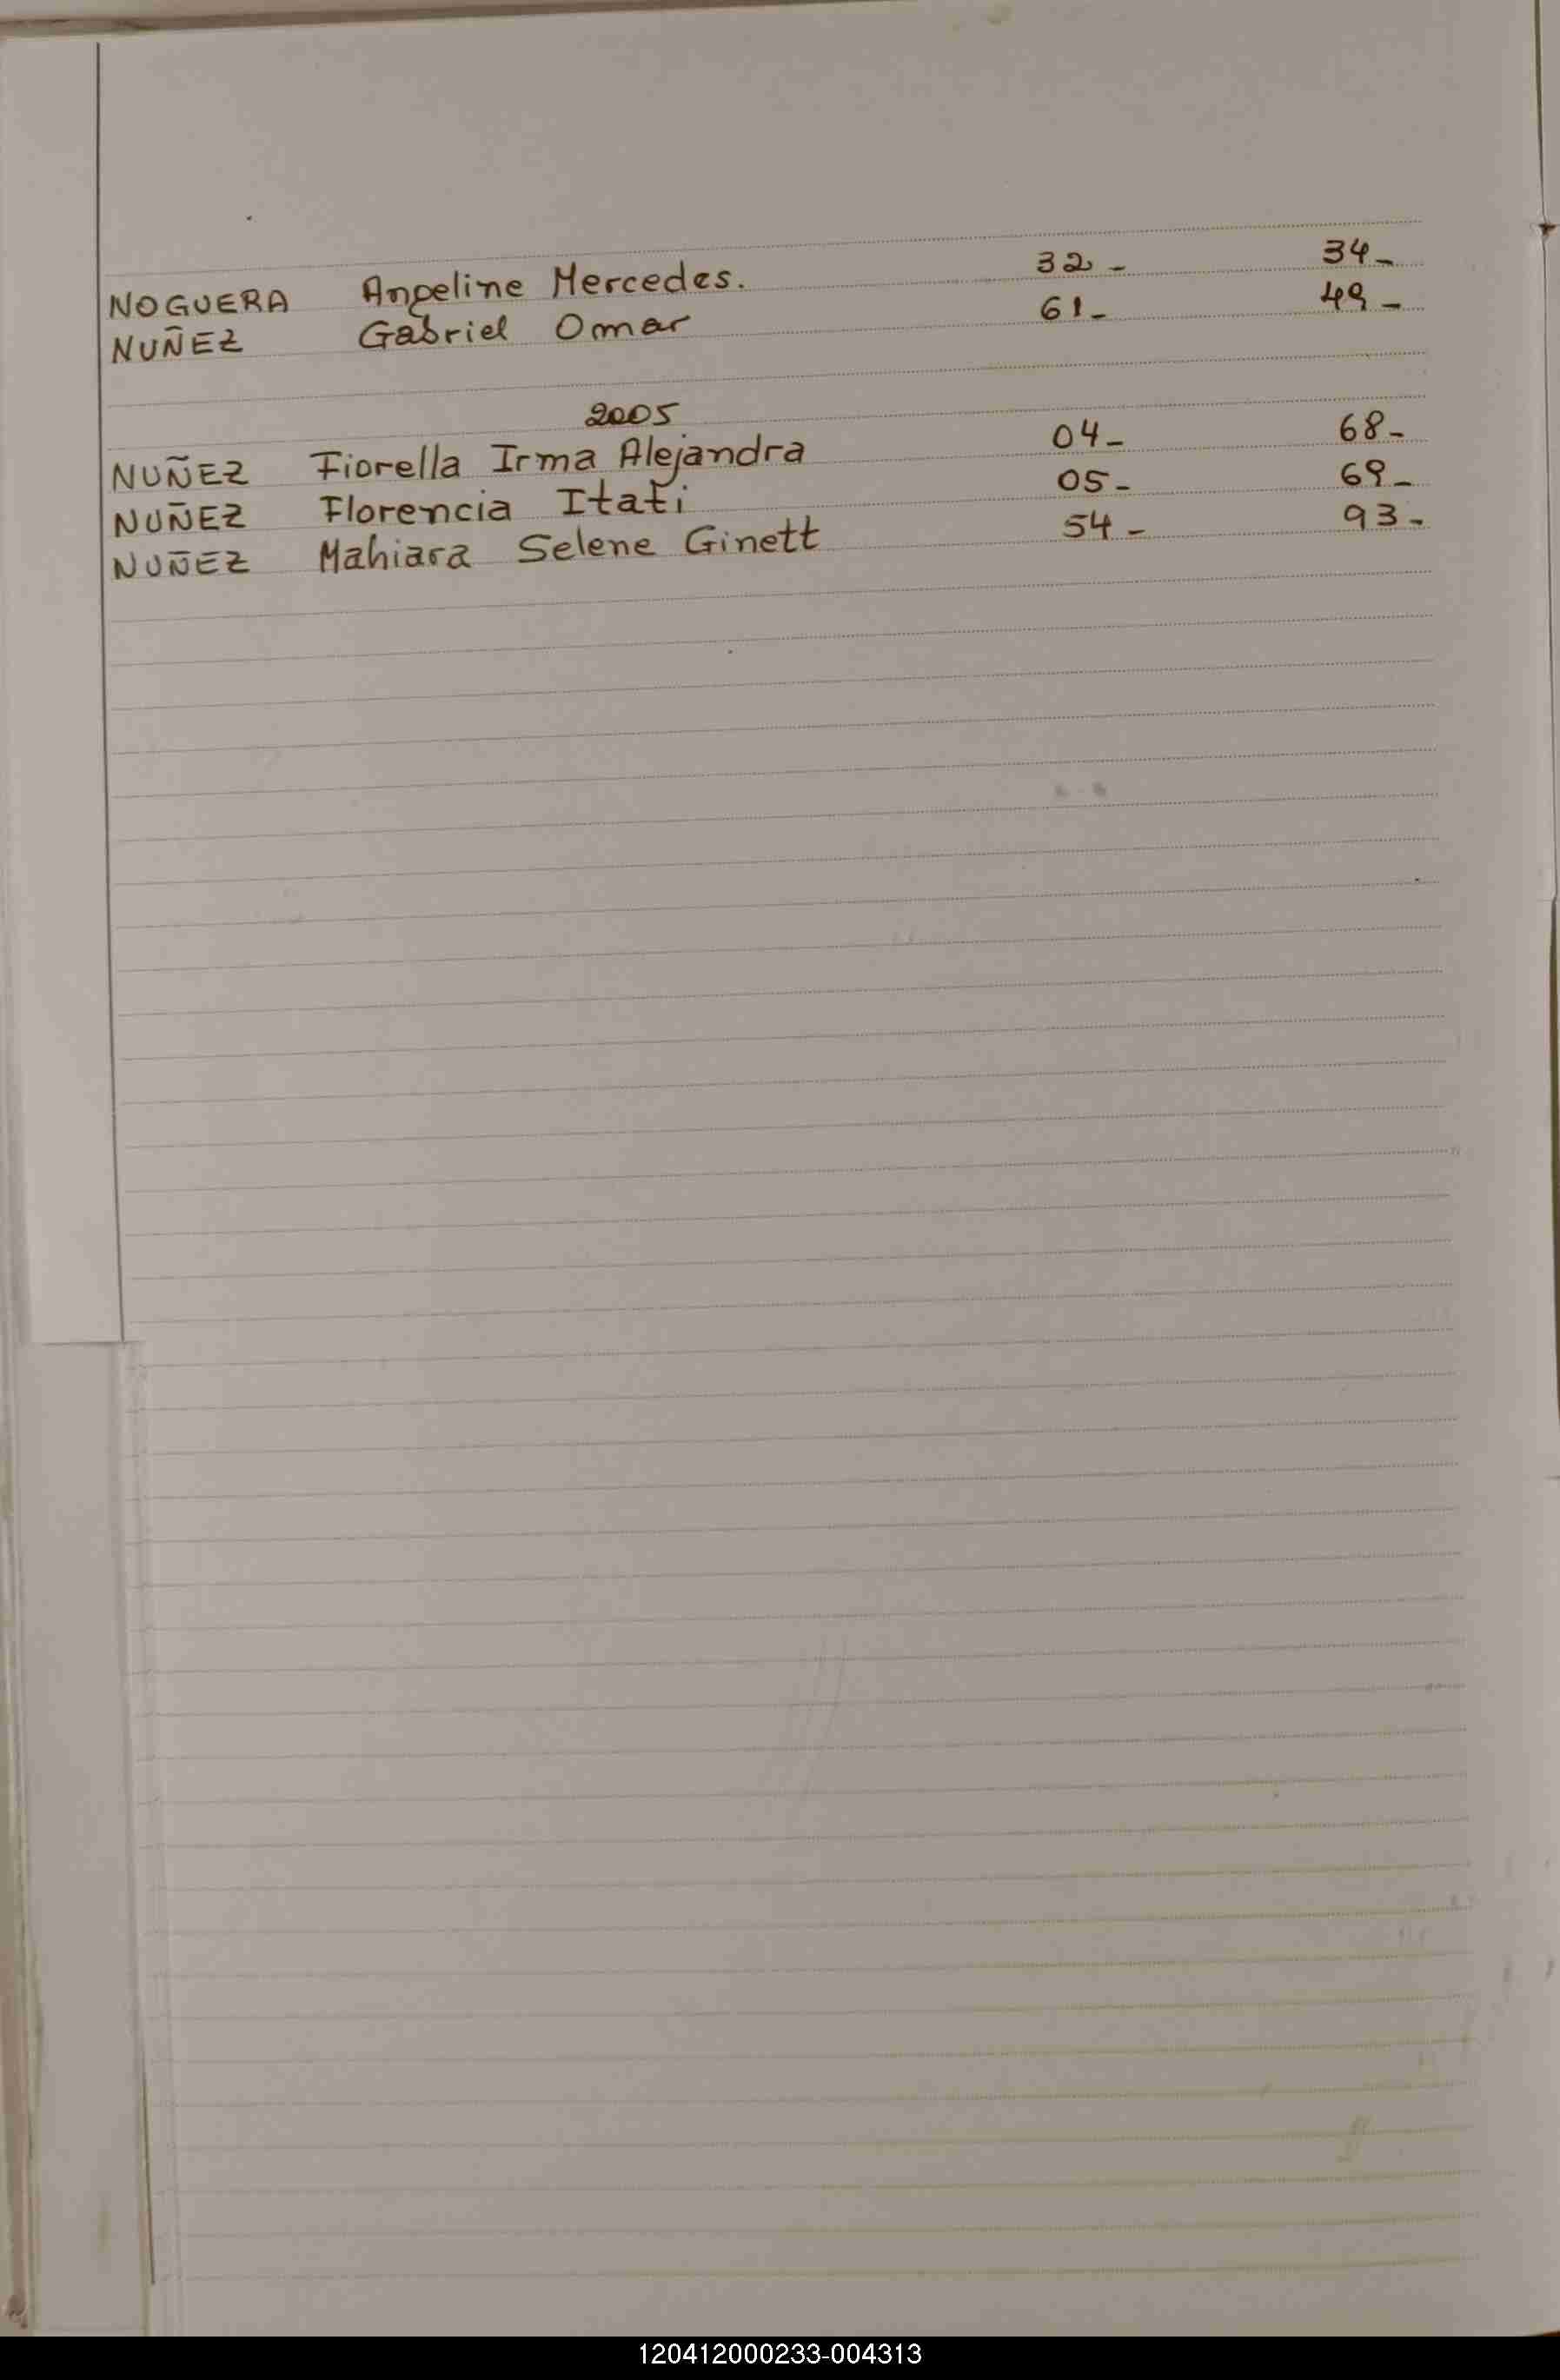 NOGUERA Angeline Mercedes. 32- 34-
NUÑEZ Gabriel Omar 61- 49-
2005
NUÑEZ Fiorella Irma Alejandra 04- 68-
NUÑEZ Florencia Itati 05- 69-
NUÑEZ Mahiara Selene Ginett 54- 93-
120412000233-004313